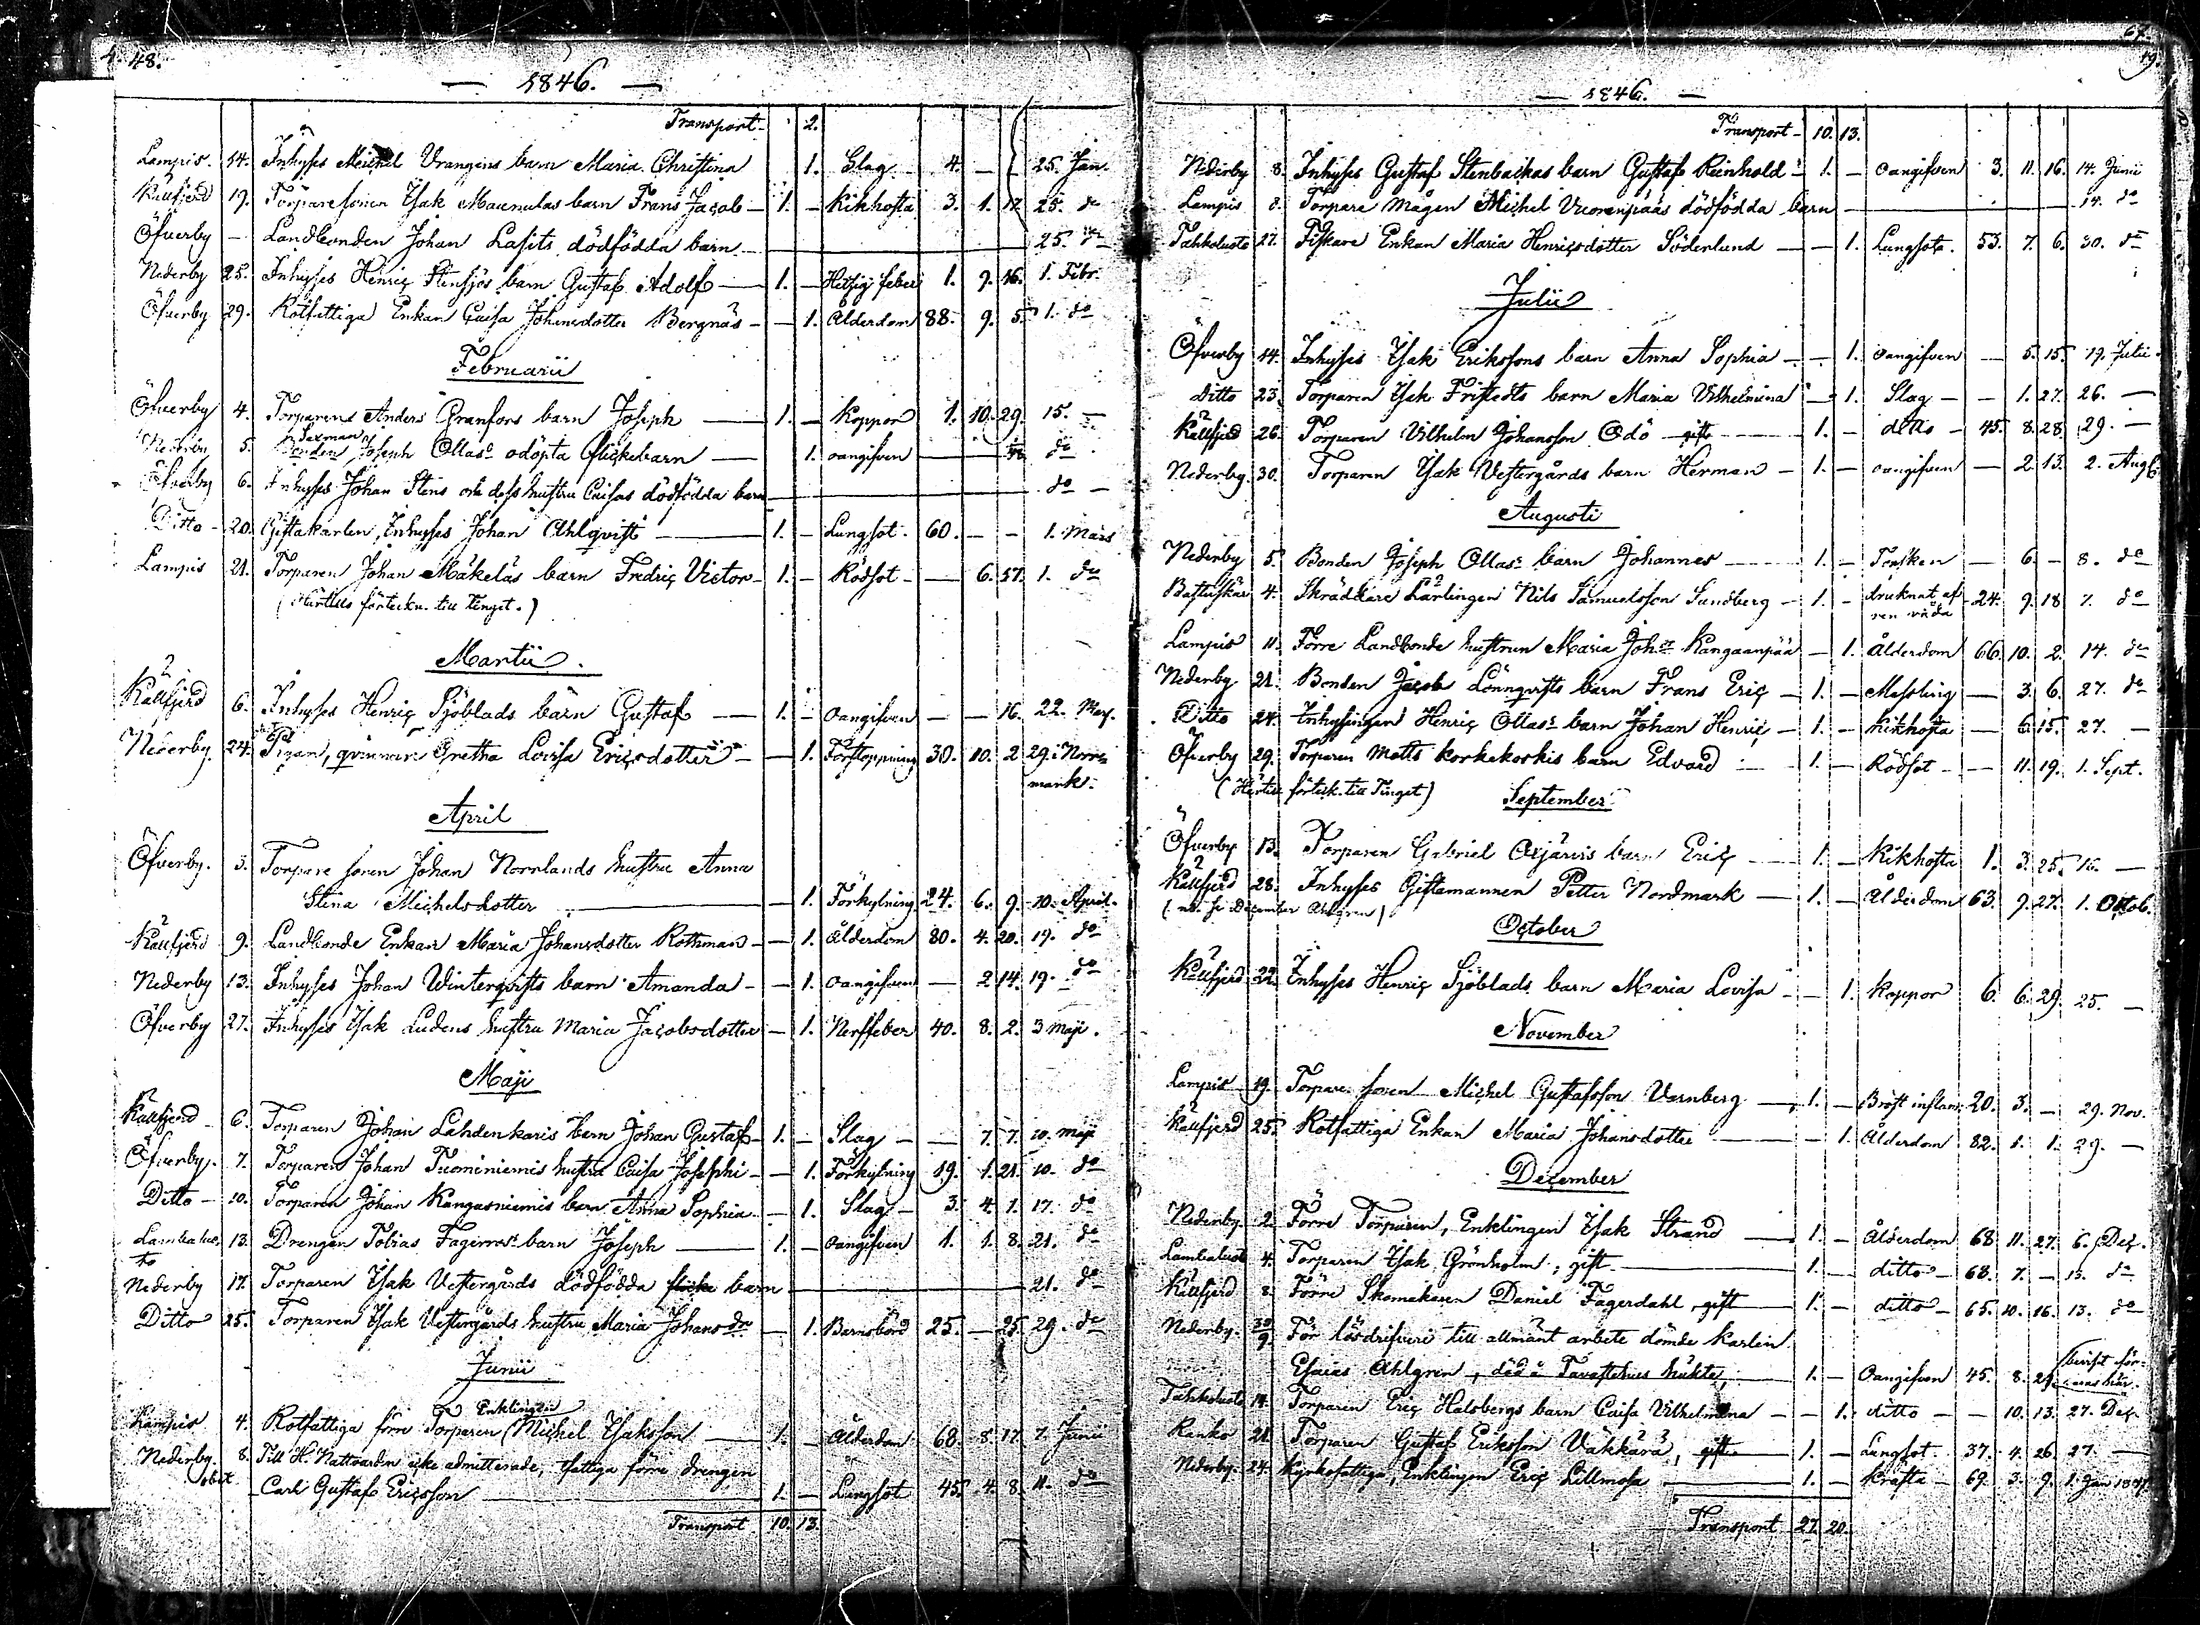 48.
— 1846. —
Transport 2.
Lampis. 14. Inhyses Michel Vrangens barn Maria Christina 1. Slag 4. — 25. Jan.
Källfjerd 19. Torparesonen Isak Maunulas barn Frans Jacob — 1. — Kikhosta 3. 1. 17. 25. do
Öfverby — Landbonden Johan Lasits dödfödda barn — 25. do
Nederby 25. Inhyses Henriç Stensjös barn Gustaf Adolf — 1. — Hetsig feber 1. 9. 16. 1. Febr.
Öfverby 29. Rotfattiga Enkan Caisa Johansdotter Bergnäs — 1. Ålderdom 88. 9. 5. 1. do
Februarii
Öfverby 4. Torparens Anders Granfors barn Joseph — 1. — Koppor 1. 10. 29. 15. —
Nederby 5. Bonden Joseph Ollas odöpta flickebarn — 1. oangifven — do
Öfverby 6. Inhyses Johan Stens och dess hustru Caisas dödfödda barn — do —
Ditto 20. Giftakarlen, Inhyses Johan Ahlqvist — 1. — Lungsot. 60. — — 1. Mars
Lampis 21. Torparen Johan Mäkeläs barn Fredriç Victor — 1. — Rödsot — 6. 17. 1. do
(Härtills förteckn. till Tinget.)
Martii.
Källfjerd 6. Inhyses Henriç Sjöblads barn Gustaf — 1. — oangifven — — 16. 22. Mars.
Nederby. 24. Pigan, qvinnan Gretha Lovisa Eriçsdotter — 1. Förstoppning 30. 10. 2 29. i Norrmark.
April
Öfverby. 3. Torpare sonen Johan Norrlands hustru Anna
Stina Michelsdotter — 1. Förkylning 24. 6. 9. 10. April.
Källfjerd 9. Landbonde Enkan Maria Johansdotter Rothman — 1. Ålderdom 80. 4. 20. 19. do
Nederby 13. Inhyses Johan Winterqvists barn Amanda — 1. oangifven — 2 14. 19. do
Öfverby 27. Inhyses Isak Ludens hustru Maria Jaçobsdotter — 1. Nerffeber 40. 8. 2. 3 Maji.
Maji
Källfjerd 6. Torparen Johan Lahdenkaris barn Johan Gustaf — 1. — Slag — — 7. 7. 10. Maji
Öfverby. 7. Torparen Johan Tuominiemis hustru Caisa Josephi — 1. Förkylning 19. 1. 21. 10. do
Ditto — 10. Torparen Johan Kangasniemis barn Anna Sophia — 1. Slag — 3. 4. 1. 17. do
Lambaluoto 13. Drengen Tobias barn Joseph — 1. — oangifven 1. 1. 8. 21. do
Nederby 17. Torparen Isak Vestergårds dödfödda flicke barn — 21. do
Ditto 25. Torparen Isak Vestergårds hustru Maria Johansdr — 1. Barnsbörd 25. — 25. 29. do
Junii
Enklingen
Lampis 4. Rotfattiga förre Torparen Michel Isaksson — 1. — Ålderdom 68. 8. 17. 7. Junii
Nederby. 8. Till H. Nattvarden icke admitterade, fattiga förre drengen
Carl Gustaf Eriçsson — 1. — Lungsot 45. 4. 8. 11. do
Transport 10. 13.
19.
— 1846. —
Transport — 10. 13.
Nederby 8. Inhyses Gustaf Stenbackas barn Gustaf Reinhold — 1. — oangifven 3. 11. 16. 14. Junii
Lampis 8. Torpare mågen Michel Vuorenpääs dödfödda barn — 14. do
Tahkoluoto 27. Fiskare Enkan Maria Henriçsdotter Söderlund — 1. Lungsot. 53. 7. 6. 30. do
Julii
Öfverby 14. Inhyses Isak Erikssons barn Anna Sophia — 1. oangifven — 5. 15. 19. Julii.
Ditto 23. Torparen Isak Fristedts barn Maria Vilhelmina — 1. Slag — — 1. 27. 26. —
Källfjerd 26. Torparen Vilhelm Johansson Odö gift — 1. — ditto — 45. 8. 28. 29. —
Nederby. 30. Torparen Isak Vestergårds barn Herman — 1. — oangifven — 2. 13. 2. Aug.
Augusti
Nederby 5. Bonden Joseph Ollas barn Johannes — 1. — Torsken — 6. — 8. do
Bastuskär 4. Skräddare Lärlingen Nils Samuelsson Sundberg — 1. — druknat af ren våda 24. 9. 18 7. do
Lampis 11. Förre Landbonde hustrun Maria Johdr Kangaanpää — 1. Ålderdom 66. 10. 2. 14. do
Nederby 21. Bonden Jacob Lönnqvists barn Frans Eriç — 1. — Messling — 3. 6. 27. do
Ditto 24. Inhysingen Henriç Ollas barn Johan Henriç — 1. — Kikhosta — 6. 15. 27. —
Öfverby 29. Torparen Matts Korkekoskis barn Edvard — 1. — Rödsot — — 11. 19. 1. Sept.
(Härtill förteckn. till Tinget)
September
Öfverby 13. Torparen Gabriel barn Eriç — 1. — Kikhosta 1. 3. 25. 16. —
Källfjerd 28. Inhyses Giftemannen Petter Nordmark — 1. — Ålderdom 63. 9. 27. 1. Octob.
(nb. se December Ahlgren)
October
Källfjerd 22. Inhyses Henriç Sjöblads barn Maria Lovisa — 1. Koppor 6. 6. 29. 25. —
November
Lampis 19. Torpare sonen Michel Gustafsson Varnberg — 1. — Bröst inflam. 20. 3. — 29. Nov.
Källfjerd 25. Rotfattiga Enkan Maria Johansdotter — 1. Ålderdom 82. 1. 1. 29. —
December
Nederby 2. Förre Torparen, Enklingen Isak Strand — 1. — Ålderdom 68 11. 27. 6. Deç.
Lambaluoto 4. Torparen Isak Grönholm, gift — 1. — ditto — 68. 7. — 13. do
Källfjerd 8. Förre Skomakaren Daniel Fagerdahl, gift — 1. — ditto — 65. 10. 16. 13. do
Nederby. 30/9. För lösdrifveri till allmänt arbete dömde karlen
Esaias Ahlgren, död i Tavastehus häkte, — 1. — Oangifven 45. 8.
Tahkoluoto 14. Torparen Eriç Halsbergs barn Caisa Vilhelmina — 1. ditto — — 10. 13. 27. Deç.
Ranko 21. Torparen Gustaf Eriksson Väkkärä, gift — 1. — Lungsot. 37. 4. 26. 27. —
Nederby. 24. Kyrkofattiga, Enklingen Eriç Lillmosa — 1. — Kräfta — 69. 3. 9. 1. Jan 1847.
Transport 27. 20.